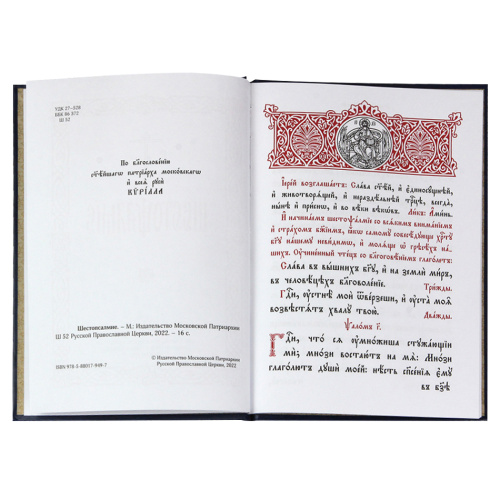 УДК 27-528
ББК 86 372
Ш 52
По благословенїю
ст҃ѣйшагѡ патрїарха московскагѡ
и҆ всеѧ̀ рꙋсѝ
КѴРІЛЛА
Шестопсалмие. – М.: Издательство Московской Патриархии
Ш 52 Русской Православной Церкви, 2022. – 16 с.
ISBN 978-5-88017-949-7
© Издательство Московской Патриархии
Русской Православной Церкви, 2022
І҆ере́й возглаша́етъ: Сла́ва ст҃ѣ́й, и҆ є҆диносꙋ́щнѣй,
и҆ животворѧ́щей, и҆ нераздѣ́льнѣй трⷪ҇цѣ, всегда̀,
ны́нѣ и҆ при́снѡ, и҆ во вѣ́ки вѣкѡ́въ. Ли́къ: А҆ми́нь.
И҆ начина́емъ шестоѱа́лмїе со всѧ́кимъ внима́нїемъ
и҆ стра́хомъ бж҃їимъ, ꙗ҆́кѡ самомꙋ̀ собесѣ́дꙋюще хрⷭ҇тꙋ̀
бг҃ꙋ на́шемꙋ неви́димѡ, и҆ молѧ́ще ѡ҆ грѣсѣ́хъ на́-
шихъ. Оу҆чине́нный чте́цъ со благоговѣ́нїемъ глаго́летъ:
Сла́ва въ вы́шнихъ бг҃ꙋ, и҆ на землѝ ми́ръ,
въ человѣ́цѣхъ благоволе́нїе. Три́жды.
Гдⷭ҇и, ᲂу҆стнѣ̀ моѝ ѿве́рзеши, и҆ ᲂу҆ста̀ моѧ̑
возвѣстѧ́тъ хвалꙋ̀ твою̀. Два́жды.
Ѱало́мъ г҃.
Гдⷭ҇и, что́ сѧ ᲂу҆мно́жиша стꙋжа́ющїи
мѝ; мно́зи востаю́тъ на мѧ̀: Мно́зи
глаго́лютъ дꙋшѝ мое́й: нѣ́сть сп҃се́нїѧ є҆мꙋ̀
въ бз҃ѣ